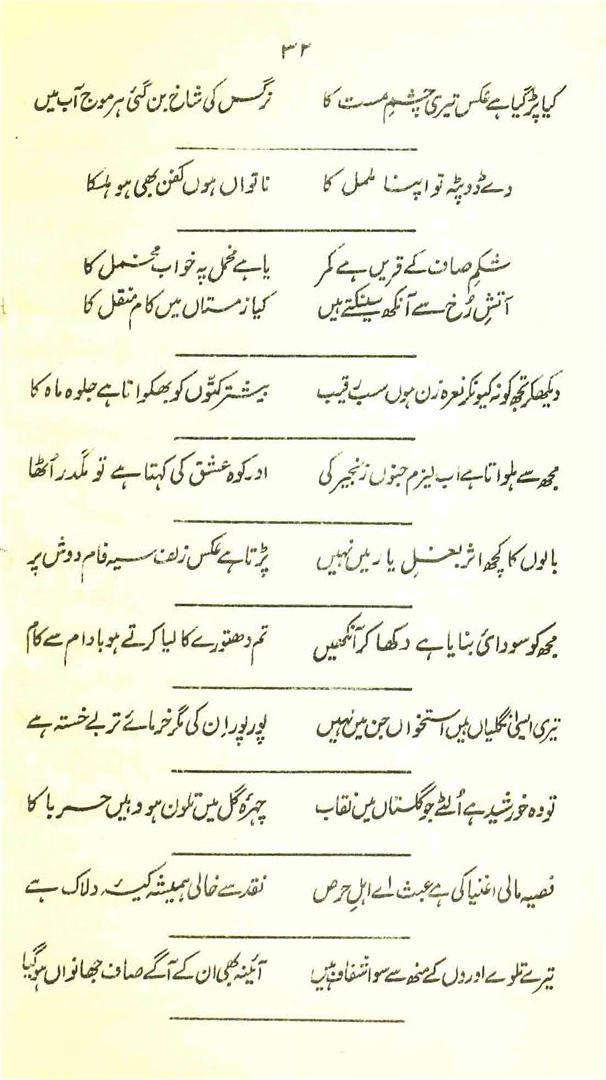 ۳۲
کیا پڑ گیا ہے عکس تیری چشمِ مست کا نرگس کی شاخ بن گئی ہر موج آب میں
دے ڈوپٹہ تو اپنا ململ کا ناتواں ہوں کفن بھی ہو ہلکا
شکمِ صاف کے قریں ہے کمر یا ہے مخمل پہ خواب مخمل کا
آتشِ رُخ سے آنکھ سینکتے ہیں کیا زمستاں میں کام منقل کا
دیکھکر تجھ کو نہ کیونکر نعرہ زن ہوں سب رقیب بیشتر کتّوں کو بھکواتا ہے جلوہ ماہ کا
مجھ سے ہلواتا ہے اب لیزم جنوں زنجیر کی اور کوہ عشق کی کہتا ہے تو مگدر اُٹھا
بالوں کا کچھ اثر بغلِ یار میں نہیں پڑتا ہے عکس زلف سیہ فام دوش پر
مجھ کو سودائی بنایا ہے دکھا کر آنکھیں تم دھتورے کا لیا کرتے ہو بادام سے کام
تیری ایسی انگلیاں ہیں استخواں جن میں نہیں پور پور ان کی مگر خرمائے تر بے خستہ ہے
تو وہ خورشید ہے اُلٹے جو گلستاں میں نقاب چہرۂ گل میں تلون ہو وہیں حربا کا
فصیہ مالی اغنیا کی ہے عبث اے اہلِ حرص نقد سے خالی ہمیشہ کیسۂ دلاک ہے
تیرے تلوے اوروں کے منھ سے سوا شفاف ہیں آئینہ بھی ان کے آگے صاف جھانواں ہو گیا